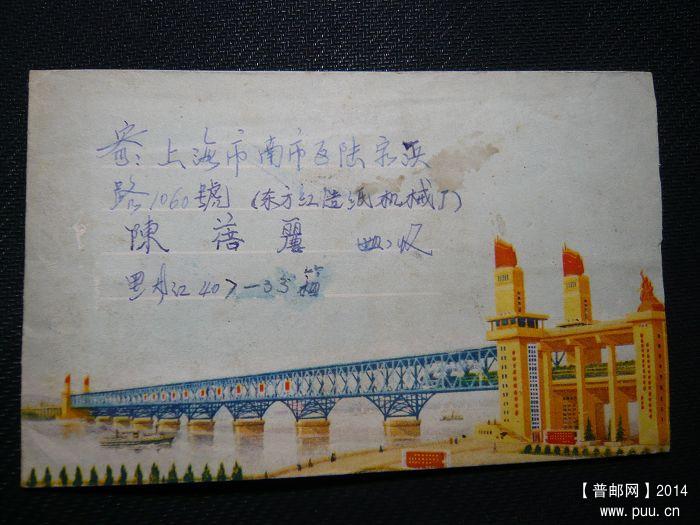 寄: 上海市南市区陆家浜
路1060號 (东方红造纸机械厂)
陳 蓓 麗 收
黑龙江407-35箱
【普邮网】2014
www.puu.cn